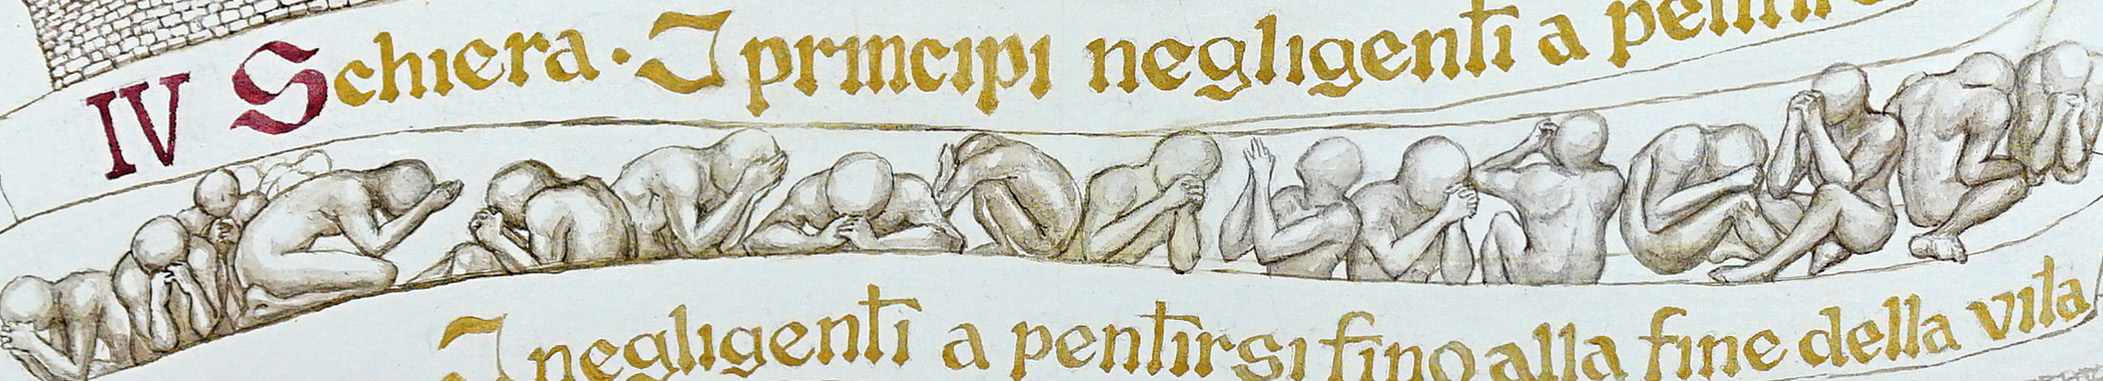 IV Schiera · I principi negligenti a pentirsi
I negligenti a pentirsi fino alla fine della vita